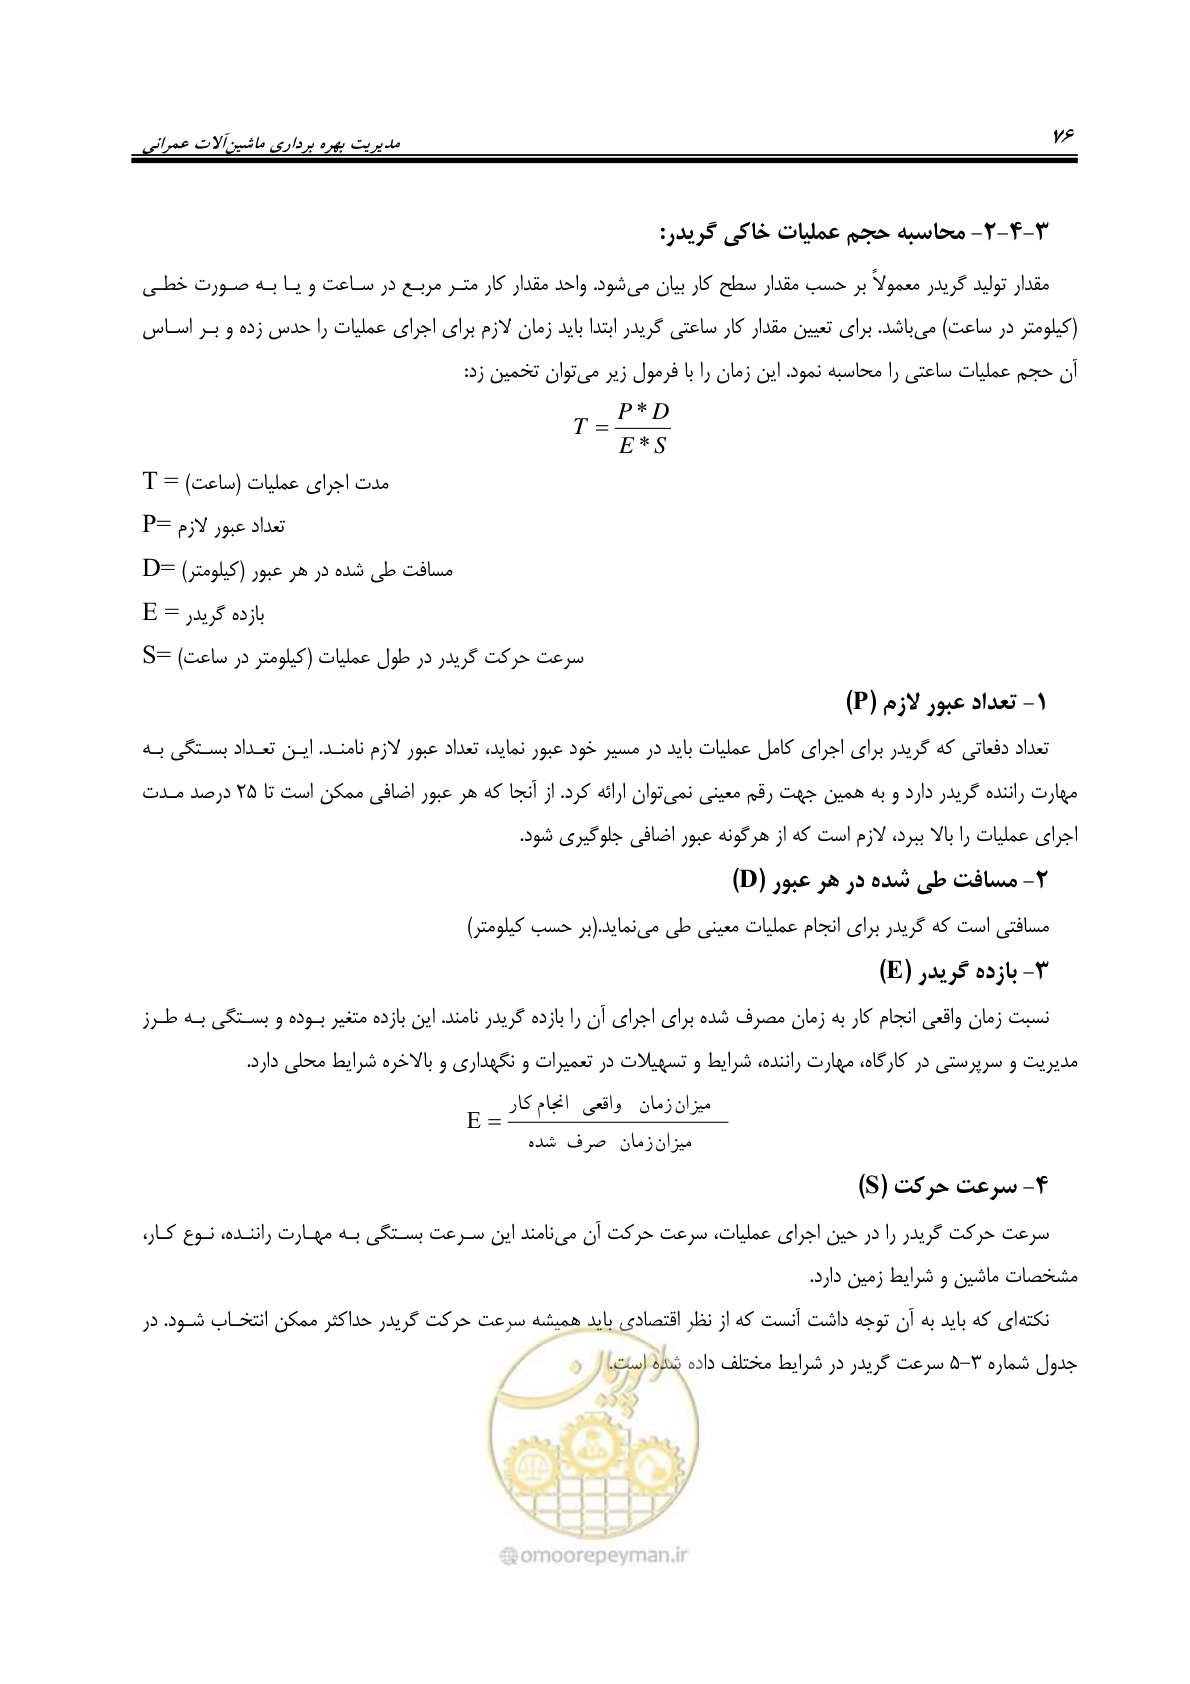 ۷۶
مدیریت بهره برداری ماشین‌آلات عمرانی
۳-۴-۲- محاسبه حجم عملیات خاکی گریدر:
مقدار تولید گریدر معمولاً بر حسب مقدار سطح کار بیان می‌شود. واحد مقدار کار متـر مربـع در سـاعت و یـا بـه صـورت خطـی
(کیلومتر در ساعت) می‌باشد. برای تعیین مقدار کار ساعتی گریدر ابتدا باید زمان لازم برای اجرای عملیات را حدس زده و بـر اسـاس
آن حجم عملیات ساعتی را محاسبه نمود. این زمان را با فرمول زیر می‌توان تخمین زد:
T = P * D / E * S
T = مدت اجرای عملیات (ساعت)
P= تعداد عبور لازم
D= مسافت طی شده در هر عبور (کیلومتر)
E = بازده گریدر
S= سرعت حرکت گریدر در طول عملیات (کیلومتر در ساعت)
۱- تعداد عبور لازم (P)
تعداد دفعاتی که گریدر برای اجرای کامل عملیات باید در مسیر خود عبور نماید، تعداد عبور لازم نامنـد. ایـن تعـداد بسـتگی بـه
مهارت راننده گریدر دارد و به همین جهت رقم معینی نمی‌توان ارائه کرد. از آنجا که هر عبور اضافی ممکن است تا ۲۵ درصد مـدت
اجرای عملیات را بالا ببرد، لازم است که از هرگونه عبور اضافی جلوگیری شود.
۲- مسافت طی شده در هر عبور (D)
مسافتی است که گریدر برای انجام عملیات معینی طی می‌نماید.(بر حسب کیلومتر)
۳- بازده گریدر (E)
نسبت زمان واقعی انجام کار به زمان مصرف شده برای اجرای آن را بازده گریدر نامند. این بازده متغیر بـوده و بسـتگی بـه طـرز
مدیریت و سرپرستی در کارگاه، مهارت راننده، شرایط و تسهیلات در تعمیرات و نگهداری و بالاخره شرایط محلی دارد.
E = میزان زمان واقعی انجام کار / میزان زمان صرف شده
۴- سرعت حرکت (S)
سرعت حرکت گریدر را در حین اجرای عملیات، سرعت حرکت آن می‌نامند این سـرعت بسـتگی بـه مهـارت راننـده، نـوع کـار،
مشخصات ماشین و شرایط زمین دارد.
نکته‌ای که باید به آن توجه داشت آنست که از نظر اقتصادی باید همیشه سرعت حرکت گریدر حداکثر ممکن انتخـاب شـود. در
جدول شماره ۳-۵ سرعت گریدر در شرایط مختلف داده شده است.
امور پیمان
@omoorepeyman.ir